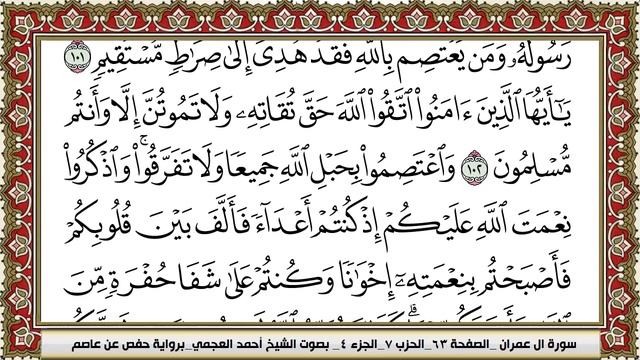 رَسُولُهُۥ وَمَن يَعْتَصِم بِٱللَّهِ فَقَدْ هُدِىَ إِلَىٰ صِرَٰطٍ مُّسْتَقِيمٍ ١٠١
يَٰٓأَيُّهَا ٱلَّذِينَ ءَامَنُوا۟ ٱتَّقُوا۟ ٱللَّهَ حَقَّ تُقَاتِهِۦ وَلَا تَمُوتُنَّ إِلَّا وَأَنتُم
مُّسْلِمُونَ ١٠٢ وَٱعْتَصِمُوا۟ بِحَبْلِ ٱللَّهِ جَمِيعًا وَلَا تَفَرَّقُوا۟ۚ وَٱذْكُرُوا۟
نِعْمَتَ ٱللَّهِ عَلَيْكُمْ إِذْ كُنتُمْ أَعْدَآءً فَأَلَّفَ بَيْنَ قُلُوبِكُمْ
فَأَصْبَحْتُم بِنِعْمَتِهِۦٓ إِخْوَٰنًا وَكُنتُمْ عَلَىٰ شَفَا حُفْرَةٍ مِّنَ
سورة ال عمران _الصفحة ٦٣_ الحزب ٧_الجزء ٤_ بصوت الشيخ أحمد العجمي_برواية حفص عن عاصم